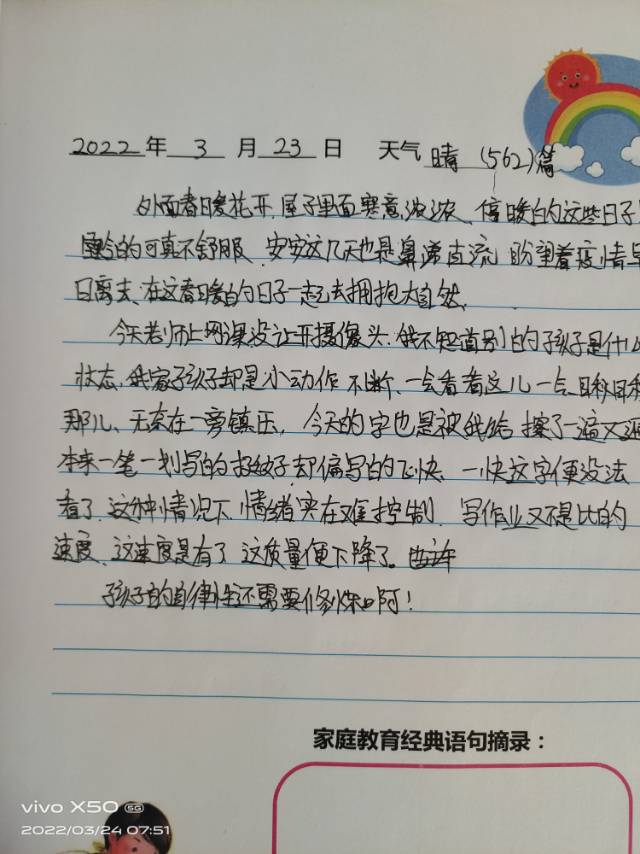 2022年 3 月 23 日 天气 晴 (562)篇
外面春日暖花开,屋子里面寒意浓浓、停暖的这些日子
冷的可真不舒服、安安这几天也是鼻涕直流 盼望着疫情早
日离去、在这春日暖的日子一起去拥抱大自然、
今天老师上网课没让开摄像头、我不知道别的孩子是什么
状态、我家孩子却是小动作不断、一会看看这儿一会
那儿、无奈在一旁镇压, 今天的字也是被我给擦了一遍又遍
本来一笔一划写的挺好却偏写的飞快、一快这字便没法
看了、这种情况下、情绪实在难控制、写作业又不是比的
速度、这速度是有了 这质量便下降了。
孩子的自律性还需要修炼啊!
家庭教育经典语句摘录:
vivo X50 5G
2022/03/24 07:51